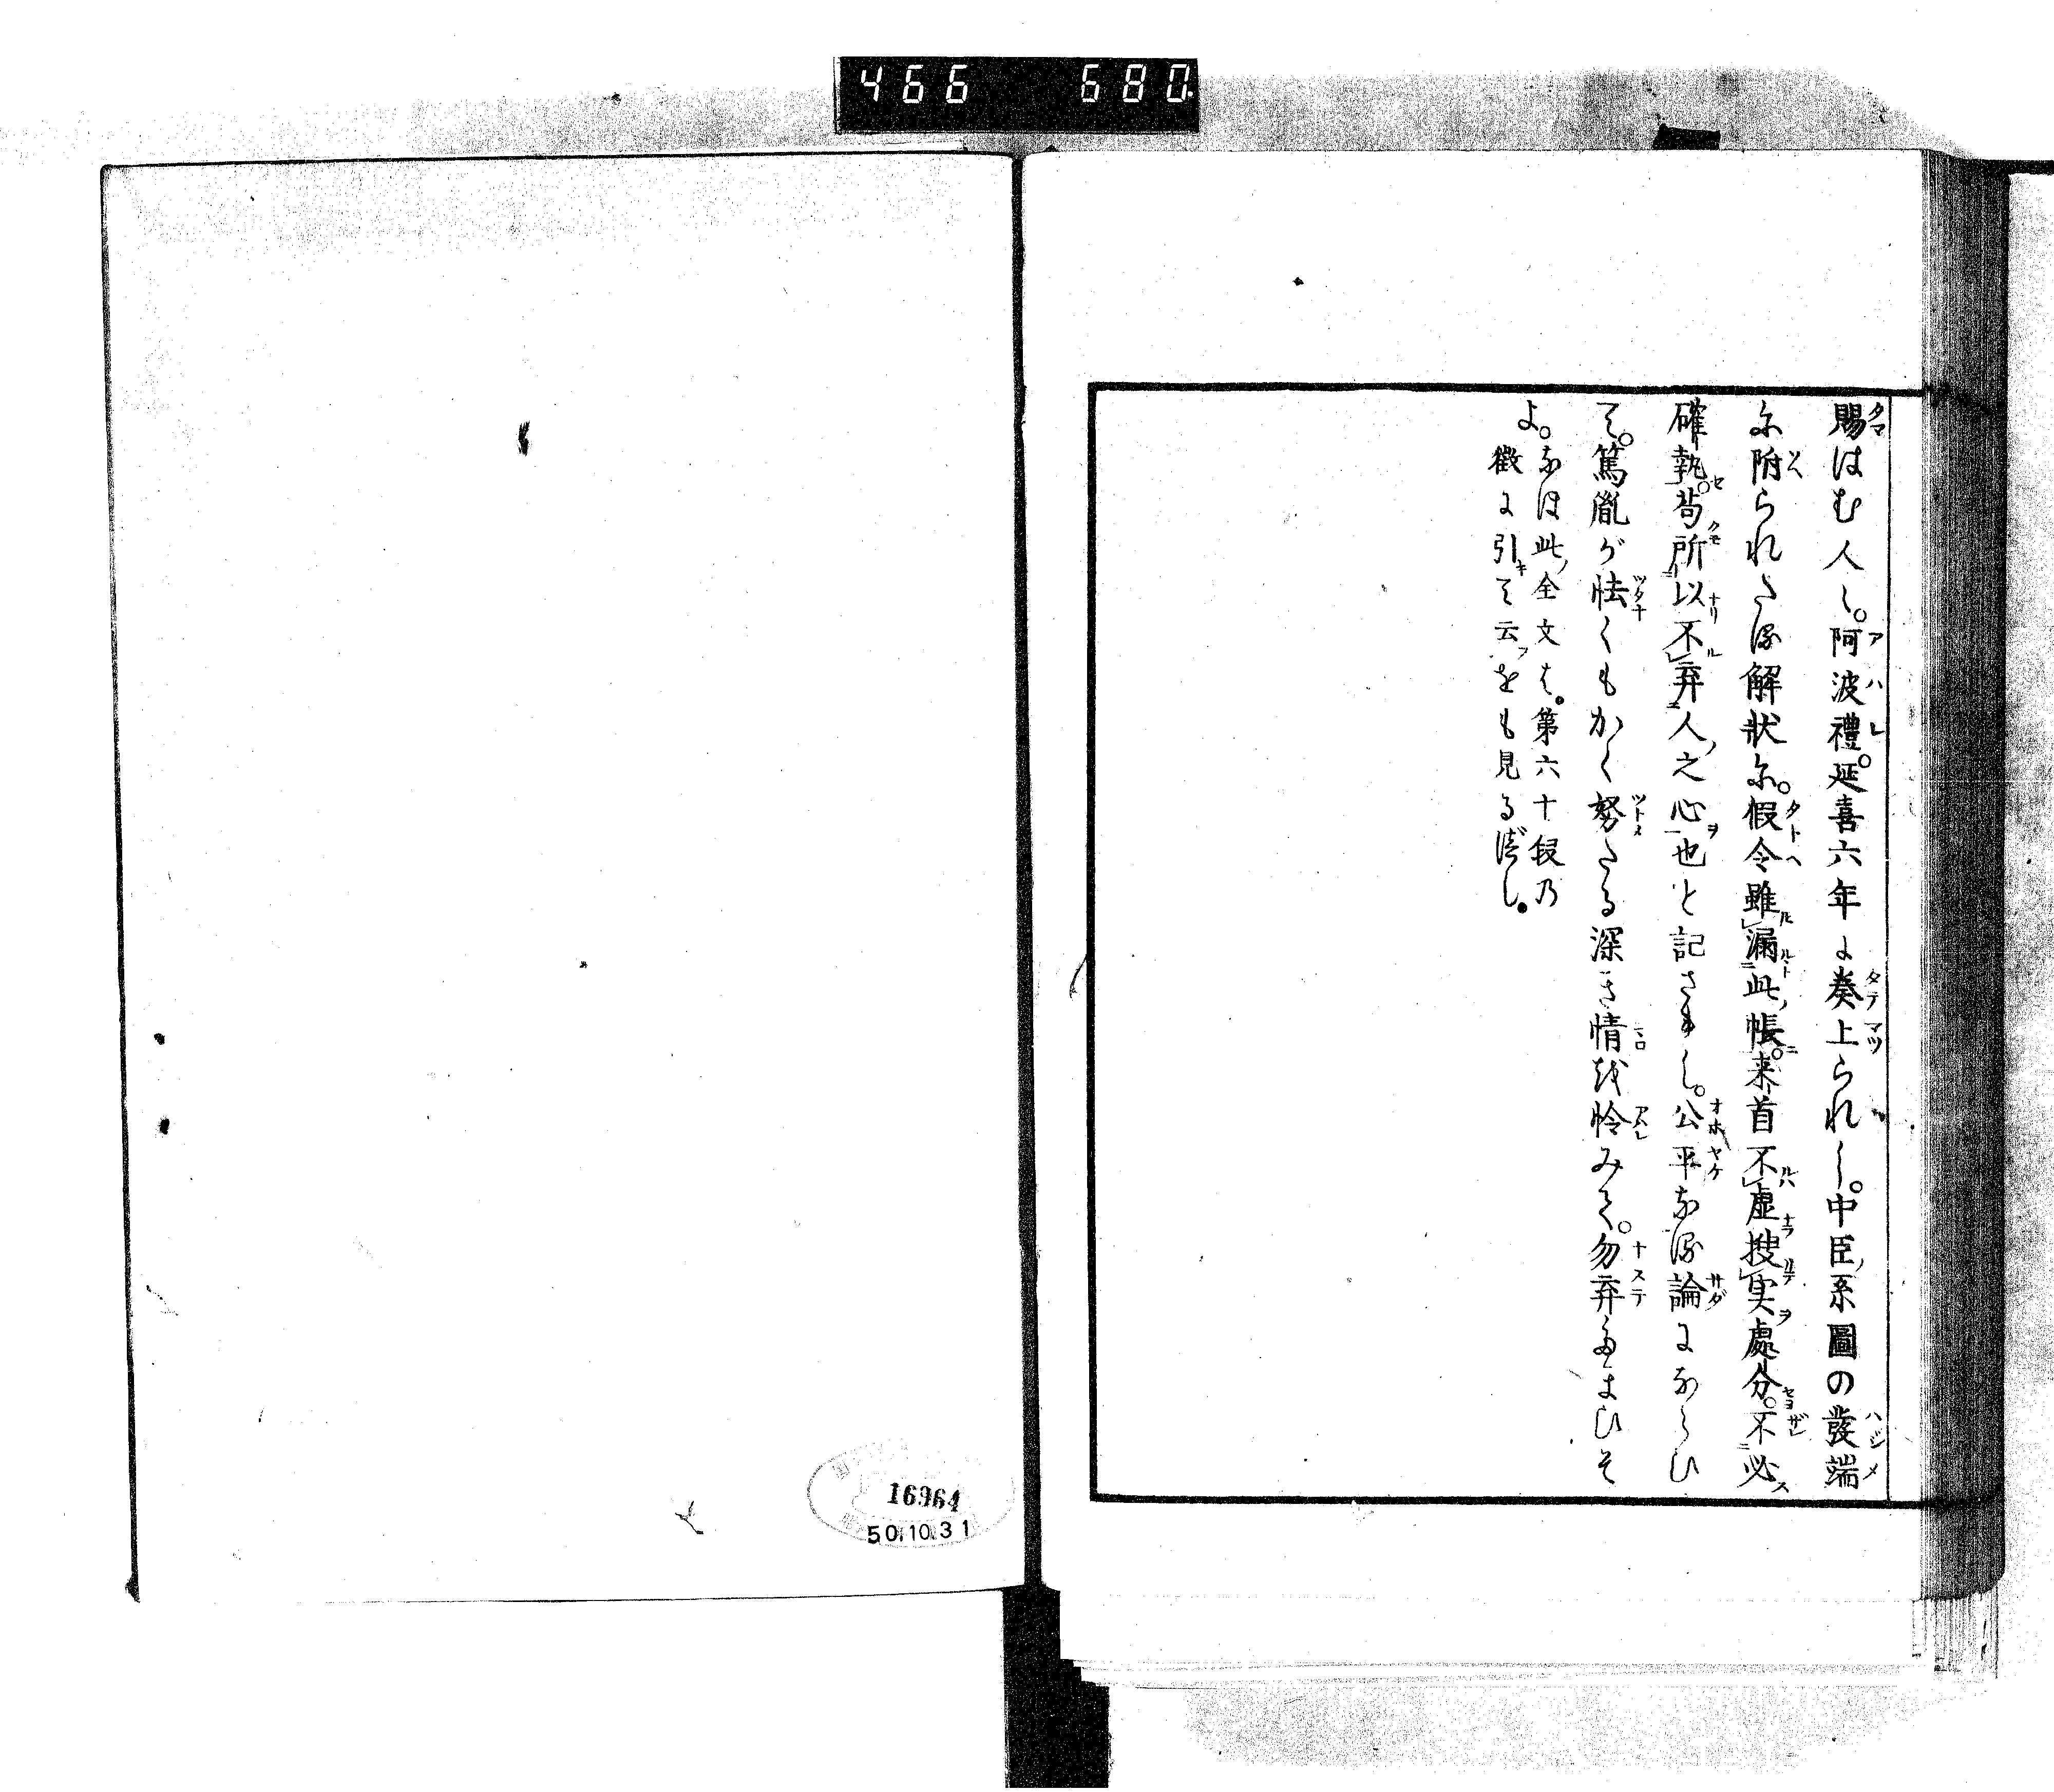 466 680
賜はむ人し。阿波禮。延喜六年に奏上られし。中臣ノ系圖の發端
に附られたる解状に。假令雖漏此ノ帳。来首不虚搜実處分。不必
確執。苟所以不弃人之心也と記されし。公平なる論にならひ
て。篤胤が怯くもかく努たる深き情を怜みて。勿弃たまひそ
よ。
なほ此ノ全文は。第六十段乃
徴に引キて云フをも見るべし。
16964
50.10.31